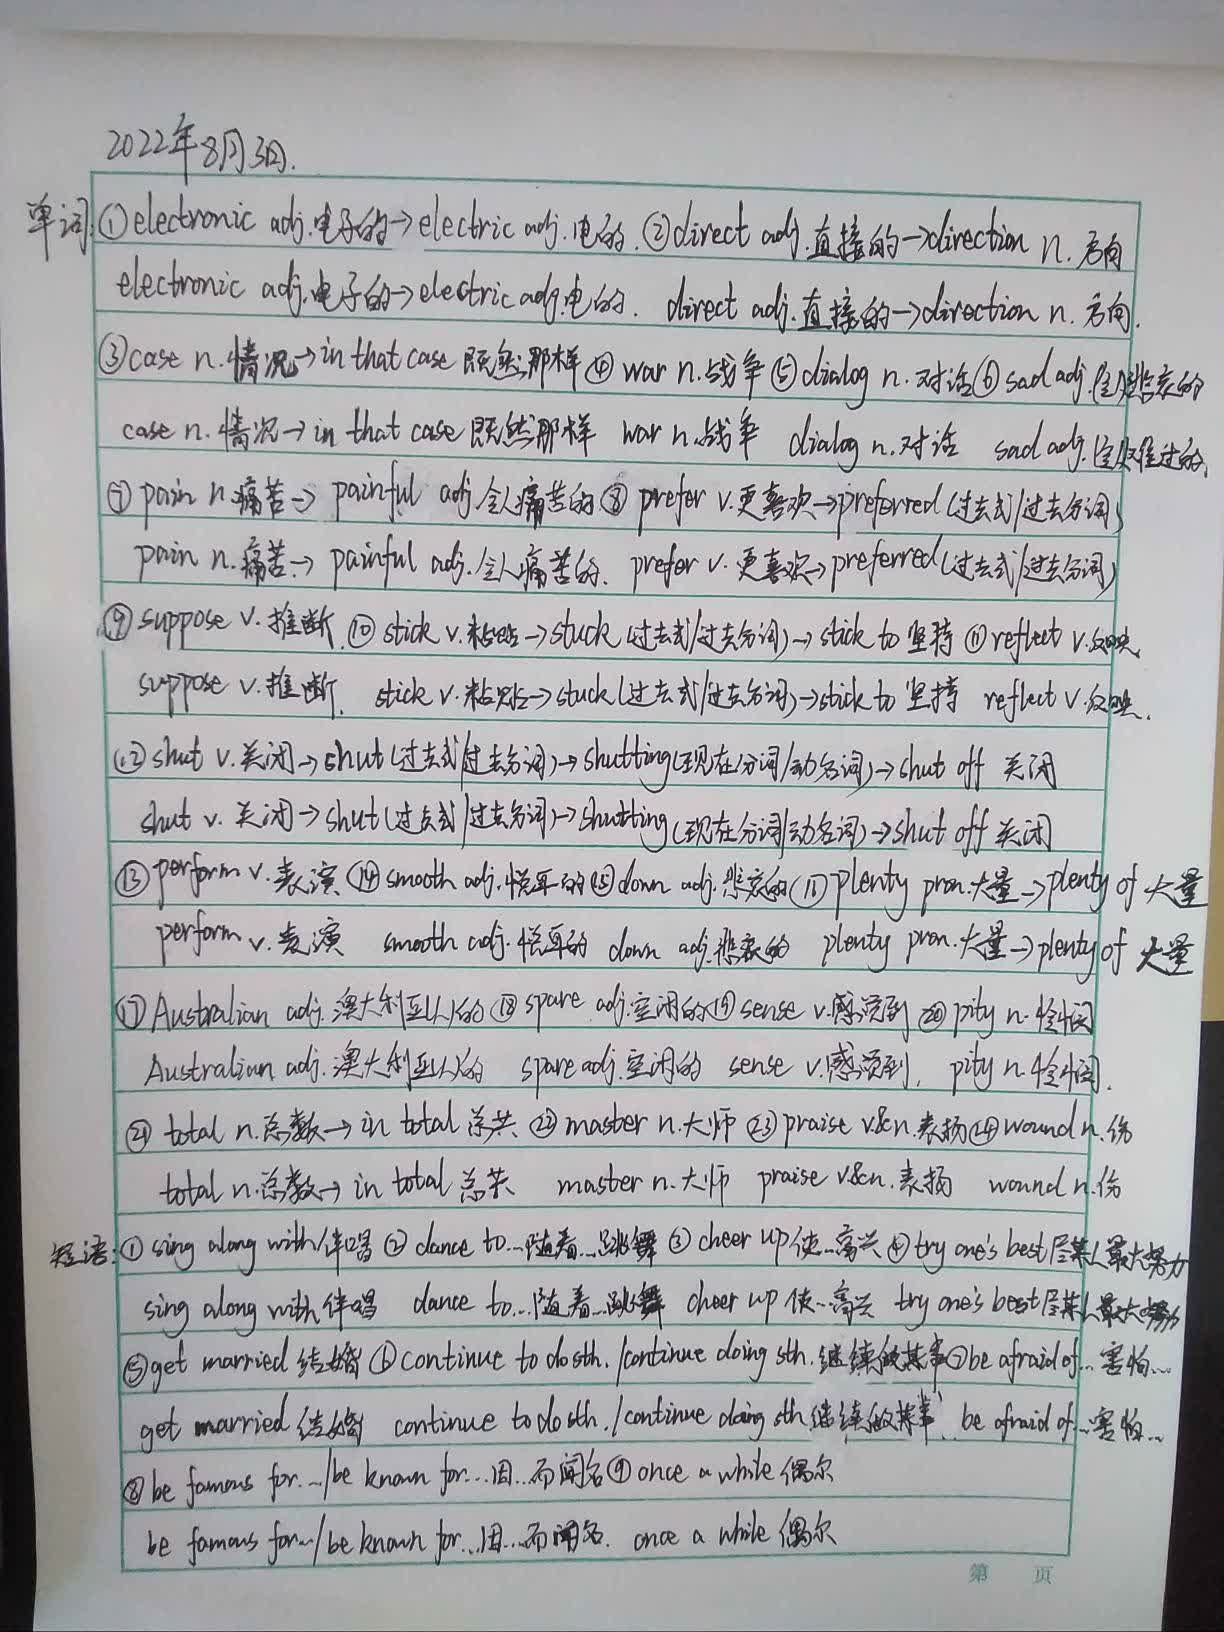 2022年8月3日.
单词:①electronic adj.电子的→electric adj.电的.②direct adj.直接的→direction n.方向
electronic adj.电子的→electric adj.电的. direct adj.直接的→direction n.方向.
③case n.情况→in that case既然那样④war n.战争⑤dialog n.对话⑥sad adj.(令人)悲哀的
case n.情况→in that case既然那样 war n.战争 dialog n.对话 sad adj.(令人)难过的.
⑦pain n.痛苦→painful adj.令人痛苦的⑧prefer v.更喜欢→preferred(过去式/过去分词)
pain n.痛苦→painful adj.令人痛苦的. prefer v.更喜欢→preferred(过去式/过去分词)
⑨suppose v.推断.⑩stick v.粘贴→stuck(过去式/过去分词)→stick to坚持⑪reflect v.反映.
suppose v.推断. stick v.粘贴→stuck(过去式/过去分词)→stick to坚持 reflect v.反映.
⑫shut v.关闭→shut(过去式/过去分词)→shutting(现在分词/动名词)→shut off 关闭
shut v.关闭→shut(过去式/过去分词)→shutting(现在分词/动名词)→shut off 关闭
⑬perform v.表演⑭smooth adj.悦耳的⑮down adj.悲哀的⑯plenty pron.大量→plenty of 大量
perform v.表演 smooth adj.悦耳的 down adj.悲哀的 plenty pron.大量→plenty of 大量
⑰Australian adj.澳大利亚(人)的⑱spare adj.空闲的⑲sense v.感觉到⑳pity n.怜悯
Australian adj.澳大利亚(人)的 spare adj.空闲的 sense v.感觉到. pity n.怜悯.
㉑total n.总数→in total总共.㉒master n.大师㉓praise v.&n.表扬㉔wound n.伤
total n.总数→in total总共 master n.大师 praise v.&n.表扬 wound n.伤
短语:①sing along with伴唱②dance to...随着...跳舞③cheer up使...高兴④try one's best尽某人最大努力
sing along with伴唱 dance to...随着...跳舞 cheer up使...高兴 try one's best尽某人最大努力
⑤get married结婚⑥continue to do sth./continue doing sth.继续做某事⑦be afraid of...害怕...
get married结婚 continue to do sth./continue doing sth.继续做某事. be afraid of...害怕...
⑧be famous for.../be known for...因...而闻名⑨once a while偶尔
be famous for.../be known for...因...而闻名. once a while偶尔
第 页